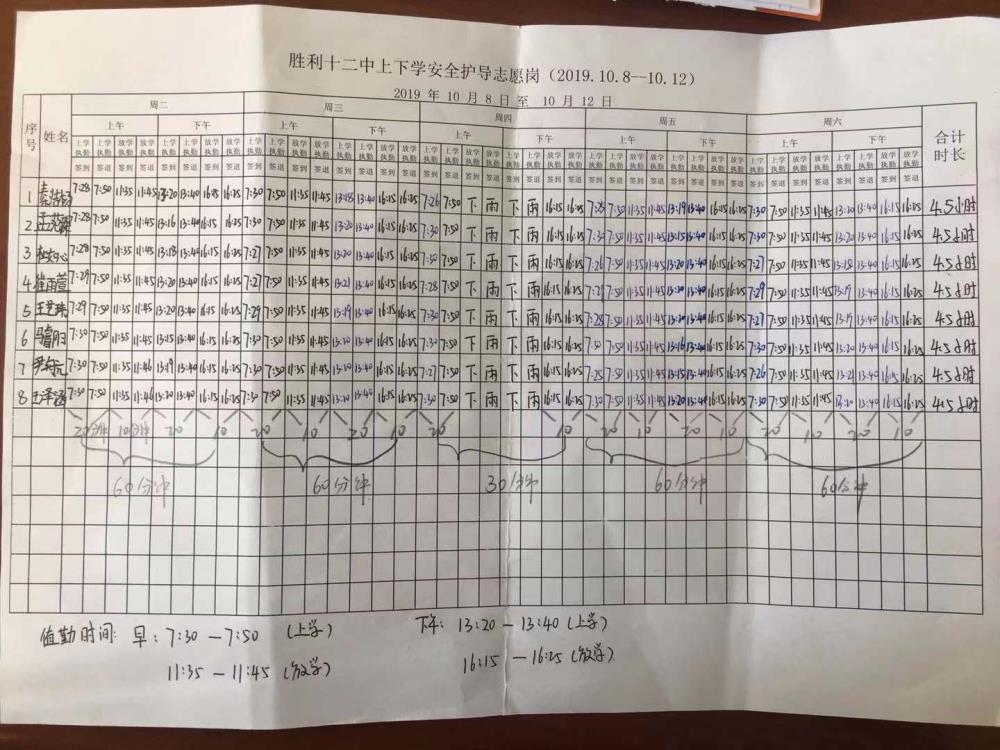 胜利十二中上下学安全护导志愿岗（2019.10.8--10.12）
2019 年 10 月 8 日 至 10 月 12 日
序号 姓名 周二 周三 周四 周五 周六 合计时长
上午 下午 上午 下午 上午 下午 上午 下午 上午 下午
上学执勤 放学执勤 上学执勤 放学执勤
签到 签退 签到 签退 签到 签退 签到 签退
1 7:28 7:50 11:35 11:45 13:20 13:40 16:15 16:25 7:30 7:50 11:35 11:45 13:18 13:40 16:15 16:25 7:26 7:50 下 雨 下 雨 16:15 16:25 7:28 7:50 11:35 11:45 13:19 13:40 16:15 16:25 7:30 7:50 11:35 11:45 13:20 13:40 16:15 16:25 4.5小时
2 7:28 7:50 11:35 11:45 13:16 13:40 16:15 16:25 7:30 7:50 11:35 11:45 13:20 13:40 16:15 16:25 7:30 7:50 下 雨 下 雨 16:15 16:25 7:30 7:50 11:35 11:45 13:40 16:15 16:25 7:30 7:50 11:35 11:45 13:20 13:40 16:15 16:25 4.5小时
3 7:28 7:50 11:35 11:45 13:18 13:40 16:15 16:25 7:27 7:50 11:35 11:45 13:20 13:40 16:15 16:25 7:30 7:50 下 雨 下 雨 16:15 16:25 7:26 7:50 11:35 11:45 13:20 13:40 16:15 16:25 7:27 7:50 11:35 11:45 13:18 13:40 16:15 16:25 4.5小时
4 崔雨萱 7:29 7:50 11:35 11:45 13:20 13:40 16:15 16:25 7:27 7:50 11:35 11:45 13:21 13:40 16:15 16:25 7:28 7:50 下 雨 下 雨 16:15 16:25 7:50 11:35 11:45 13:40 16:15 16:25 7:29 7:50 11:35 11:45 13:19 13:40 16:15 16:25 4.5小时
5 7:29 7:50 11:35 11:45 13:20 13:40 16:15 16:25 7:29 7:50 11:35 11:45 13:19 13:40 16:15 16:25 7:30 7:50 下 雨 下 雨 16:15 16:25 7:28 7:50 11:35 11:45 13:20 13:40 16:15 16:25 7:27 7:50 11:35 11:45 13:19 13:40 16:15 16:25 4.5小时
6 7:30 7:50 11:35 11:45 13:15 13:40 16:15 16:25 7:30 7:50 11:35 11:45 13:20 13:40 16:15 16:25 7:30 7:50 下 雨 下 雨 16:15 16:25 7:30 7:50 11:35 11:45 13:16 13:40 16:15 16:25 7:30 7:50 11:35 11:45 13:20 13:40 16:15 16:25 4.5小时
7 7:30 7:50 11:35 11:46 13:19 13:40 16:15 16:25 7:30 7:50 11:35 11:45 13:20 13:40 16:15 16:25 7:27 7:50 下 雨 下 雨 16:15 16:25 7:25 7:50 11:35 11:45 13:15 13:40 16:15 16:25 7:26 7:50 11:35 11:45 13:21 13:40 16:15 16:25 4.5小时
8 王泽涵 7:30 7:50 11:35 11:46 13:20 13:40 16:15 16:25 7:30 7:50 11:35 11:45 13:20 13:40 16:15 16:25 7:30 7:50 下 雨 下 雨 16:15 16:25 7:30 7:50 11:35 11:45 13:20 13:40 16:15 16:25 7:30 7:50 11:35 11:45 13:20 13:40 16:15 16:25 4.5小时
20分钟 10分钟 20 10 20 10 20 10 20 10 20 10 20 10 20 10 20 10
60分钟 60分钟 30分钟 60分钟 60分钟
值勤时间: 早: 7:30 — 7:50 (上学) 下午: 13:20 — 13:40 (上学)
11:35 — 11:45 (放学) 16:15 — 16:25 (放学)